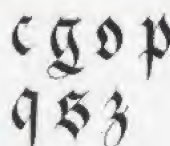 c g o p
q s z